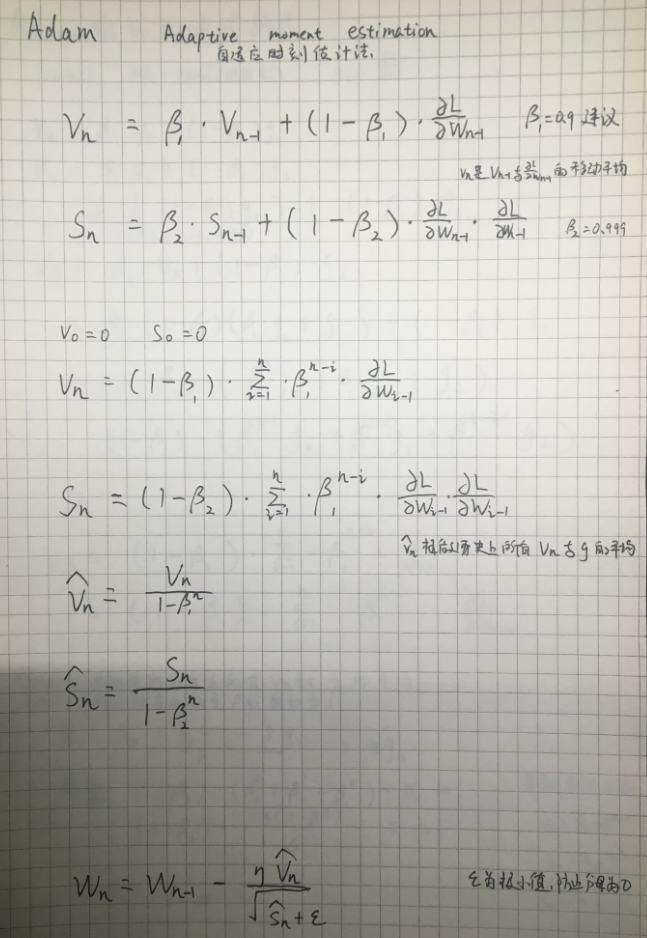 Adam Adaptive moment estimation
自适应时刻估计法.
Vn = β₁ · Vn-1 + (1 - β₁) · ∂L/∂Wn-1 β₁=0.9 建议
Vn是Vn-1与∂L/∂Wn-1的移动平均
Sn = β₂ · Sn-1 + (1 - β₂) · ∂L/∂Wn-1 · ∂L/∂Wn-1 β₂=0.999
V₀=0 S₀=0
Vn = (1-β₁) · Σ(i=1→n) · β₁^(n-i) · ∂L/∂Wi-1
Sn = (1-β₂) · Σ(i=1→n) · β₁^(n-i) · ∂L/∂Wi-1 · ∂L/∂Wi-1
V̂n 历史上所有 Vn 与 g 的平均
V̂n = Vn/(1-β₁^n)
Ŝn = Sn/(1-β₂^n)
Wn = Wn-1 - ηV̂n/√(Ŝn+ε) ε为极小值,防止分母为0